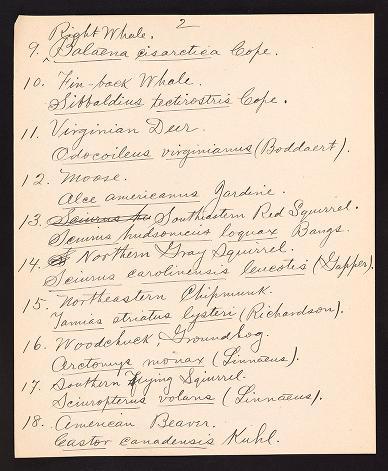 2
Right Whale.
9. Balaena cisarctica Cope.
10. Fin-back Whale.
Sibbaldius tectirostris Cope.
11. Virginian Deer.
Odocoileus virginianus (Boddaert).
12. Moose.
Alce americanus Jardine.
13. Sciurus hu Southeastern Red Squirrel.
Sciurus hudsonicus loquax Bangs.
14. Northern Gray Squirrel.
Sciurus carolinensis leucotis (Gapper).
15. Northeastern Chipmunk.
Tamias striatus lysteri (Richardson).
16. Woodchuck, Groundhog.
Arctomys monax (Linnaeus).
17. Southern Flying Squirrel.
Sciuropterus volans (Linnaeus).
18. American Beaver.
Castor canadensis Kuhl.